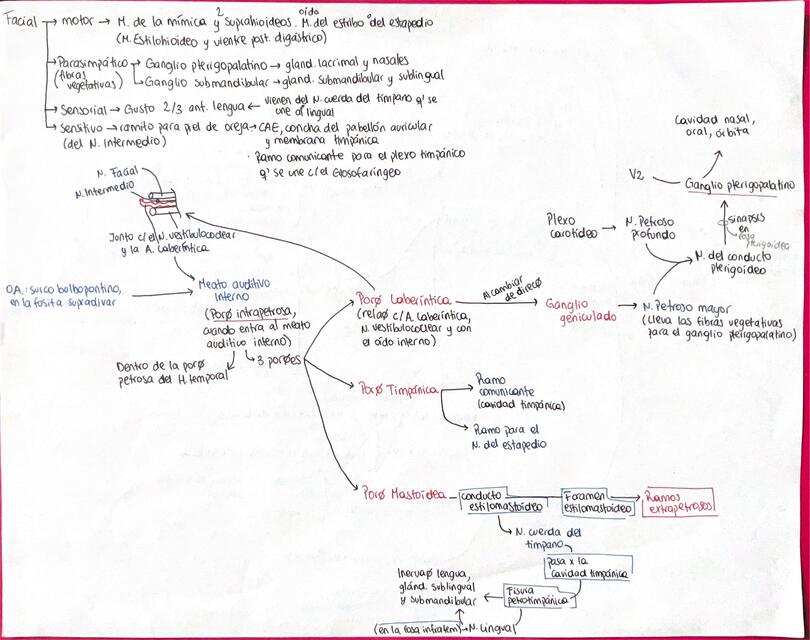 Facial → motor → M. de la mímica y 2 suprahioideos. M. del estribo º del estapedio
oído
(M. Estilohioideo y vientre post. digástrico)
Parasimpático → Ganglio pterigopalatino → gland. lacrimal y nasales
(fibras vegetativas)
Ganglio submandibular → gland. submandibular y sublingual
Sensorial → Gusto 2/3 ant. lengua ← vienen del N. cuerda del tímpano q' se
une al lingual
Sensitivo → ramito para piel de oreja → CAE, concha del pabellón auricular
(del N. Intermedio)
y membrana timpánica
· Ramo comunicante para el plexo timpánico
q' se une c/el Glosofaríngeo
Cavidad nasal,
oral, órbita
V2
Ganglio pterigopalatino
sinapsis
en
fosa
pterigoidea
N. Facial
N. Intermedio
Junto c/el N. vestibulococlear
y la A. Laberíntica
Plexo
carotídeo
N. Petroso
profundo
N. del conducto
pterigoideo
O.A.: surco bulbopontino,
en la fosita supraolivar
Meato auditivo
interno
(Porcø intrapetrosa,
cuando entra al meato
auditivo interno)
3 porøes
Dentro de la porø
petrosa del H. temporal
Porø Laberíntica
(relaø c/A. Laberíntica,
N. vestibulococlear y con
el oído interno)
Al cambiar
de direcø
Ganglio
geniculado
N. Petroso mayor
(lleva las fibras vegetativas
para el ganglio pterigopalatino)
Porø Timpánica
Ramo
comunicante
(cavidad timpánica)
Ramo para el
N. del estapedio
Porø Mastoidea
conducto
estilomastoideo
Foramen
estilomastoideo
Ramos
extrapetrosos
N. cuerda del
tímpano
pasa x la
cavidad timpánica
Fisura
petrotimpánica
Inervaø lengua,
gländ. sublingual
y submandibular
(en la fosa infratem) → N. Lingual